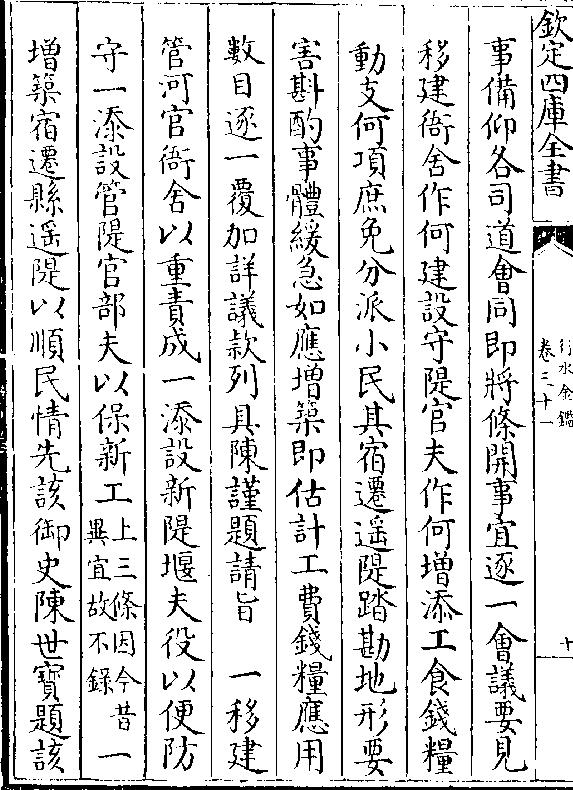 欽定四庫全書
行水金鑑
卷三十一
十
事備仰各司道會同即將條開事宜逐一會議要見
移建衙舍作何建設守隄官夫作何增添工食錢糧
動支何項庶免分派小民其宿遷遥隄踏勘地形要
害斟酌事體緩急如應增築即估計工費錢糧應用
數目逐一覆加詳議款列具陳謹題請旨　一移建
管河官衙舍以重責成一添設新隄堰夫役以便防
守一添設管隄官部夫以保新工上三條因今昔異宜故不錄一
增築宿遷縣遥隄以順民情先該御史陳世寶題該